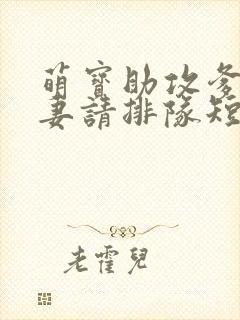 萌寶助攻爹
妻請排隊短
老霍兒